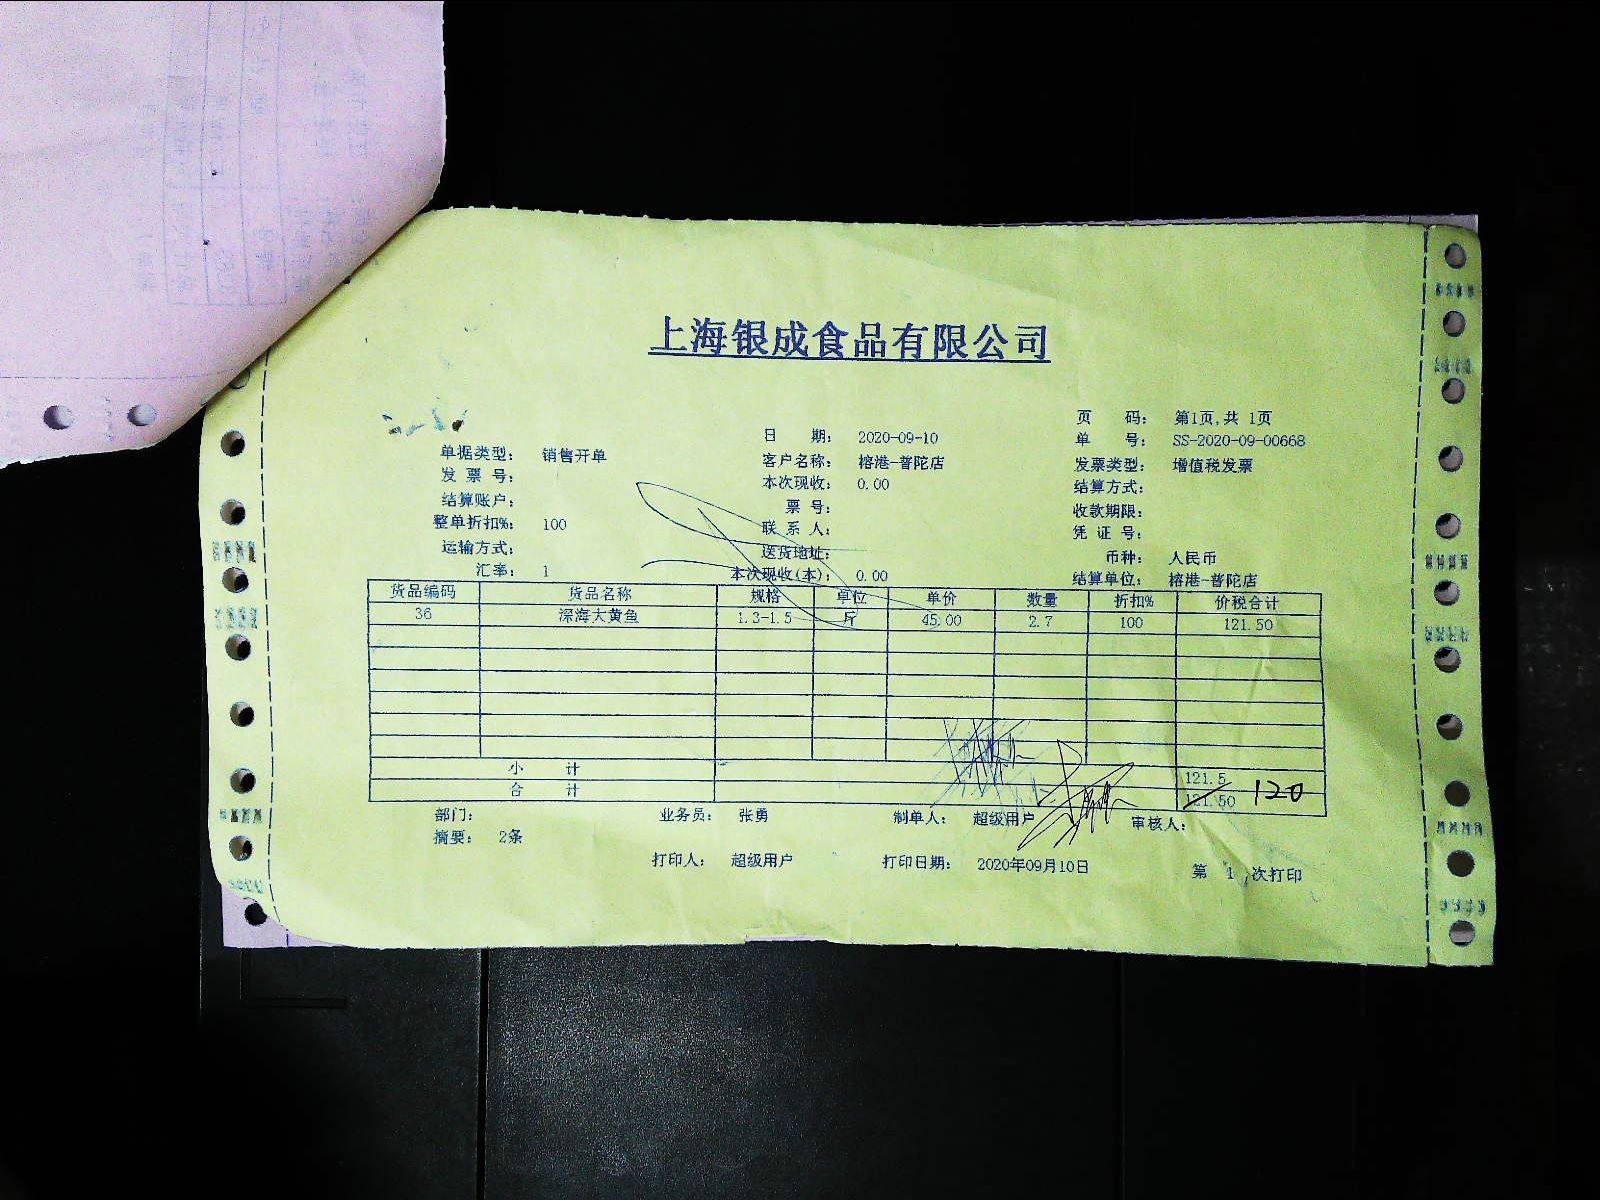 上海银成食品有限公司
页 码: 第1页,共 1页
单据类型: 销售开单 日 期: 2020-09-10 单 号: SS-2020-09-00668
发 票 号: 客户名称: 榕港-普陀店 发票类型: 增值税发票
结算账户: 本次现收: 0.00 结算方式:
整单折扣%: 100 票 号: 收款期限:
运输方式: 联 系 人: 凭 证 号:
送货地址: 币种: 人民币
汇率: 1 本次现收(本): 0.00 结算单位: 榕港-普陀店
货品编码 货品名称 规格 单位 单价 数量 折扣% 价税合计
36 深海大黄鱼 1.3-1.5 斤 45.00 2.7 100 121.50
小 计 121.5
合 计 121.50 120
部门: 业务员: 张勇 制单人: 超级用户 审核人:
摘要: 2条
打印人: 超级用户 打印日期: 2020年09月10日 第 1 次打印